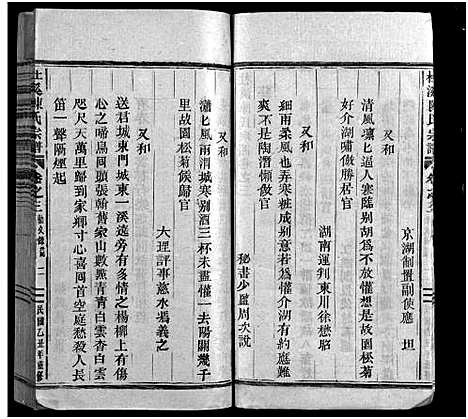 杜溪陳氏宗譜
京湖制置副使應 坦
清風壤匕逼人寒臨別胡爲不放懽想是故園松菊
好介湖嘯傲勝居官
湖南運判東川徐懋貽
又和
細雨柔風也弄寒粧成別意若爲懽介湖有約應難
爽不是陶潛懶傲官
秘書少監周次說
又和
瀟匕風雨渭城寒別酒三杯未盡懽一去陽關幾千
里故園松菊候歸官
大理評事慈水馮義之
又和
送君城東門城東一溪遶旁有多情之楊柳上有傷
心之啼鳥回頭張翰舊家山數點青青白雲杳白雲
咫尺天萬里歸到家鄉寸心喜回首空庭愁殺人長
笛一聲隔煙起
杜溪陳氏宗譜
卷之三
民國乙丑年重修